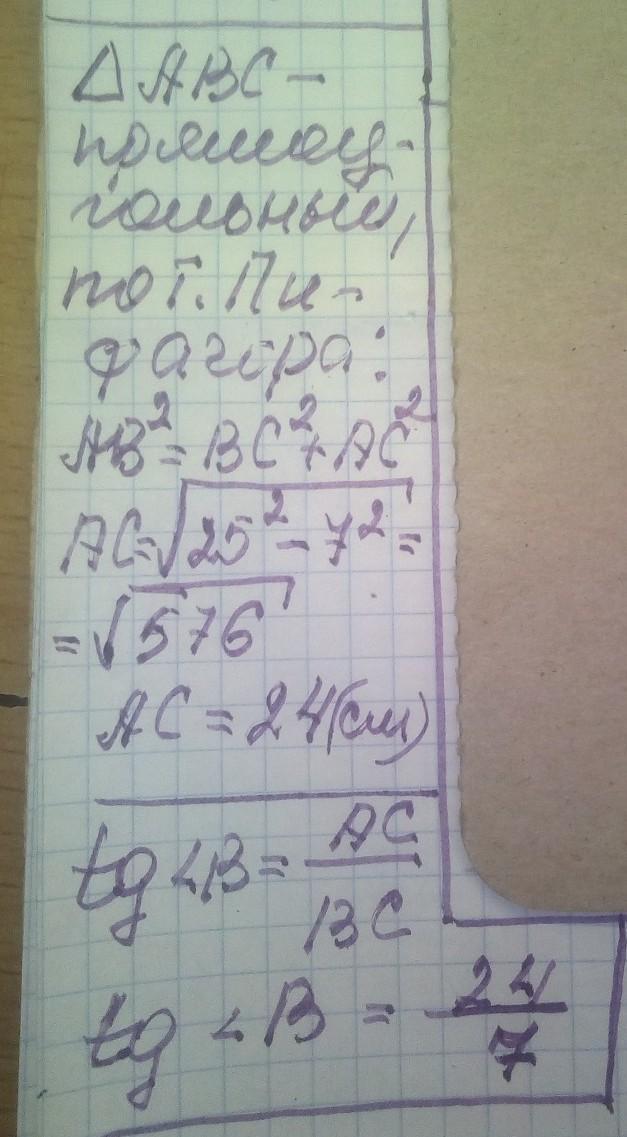 △ABC –
прямоу-
гольный,
по т. Пи-
фагора:
AB² = BC² + AC²
AC = √25² – 7² =
= √576
AC = 24 (см)
tg ∠B = AC/BC
tg ∠B = 24/7